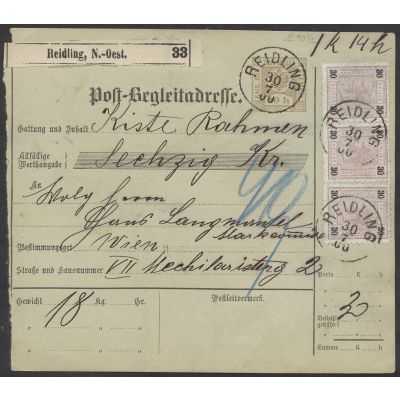 Reidling, N.-Oest. 33
1 K 14 h
REIDLING
30
7
00
30
30
Post-Begleitadresse.
REIDLING
30
7
00
Gattung und Inhalt Kiste Rahmen
Allfällige Werthangabe: Sechzig Kr.
An
Herrn
REIDLING
30
7
00
30
30
Hans Langmantel
Bestimmungsort Wien
Straße und Hausnummer VII 2
Gewicht 18 Kg. Gr.
Postleitvermerk.
Porto K h
Summe K h